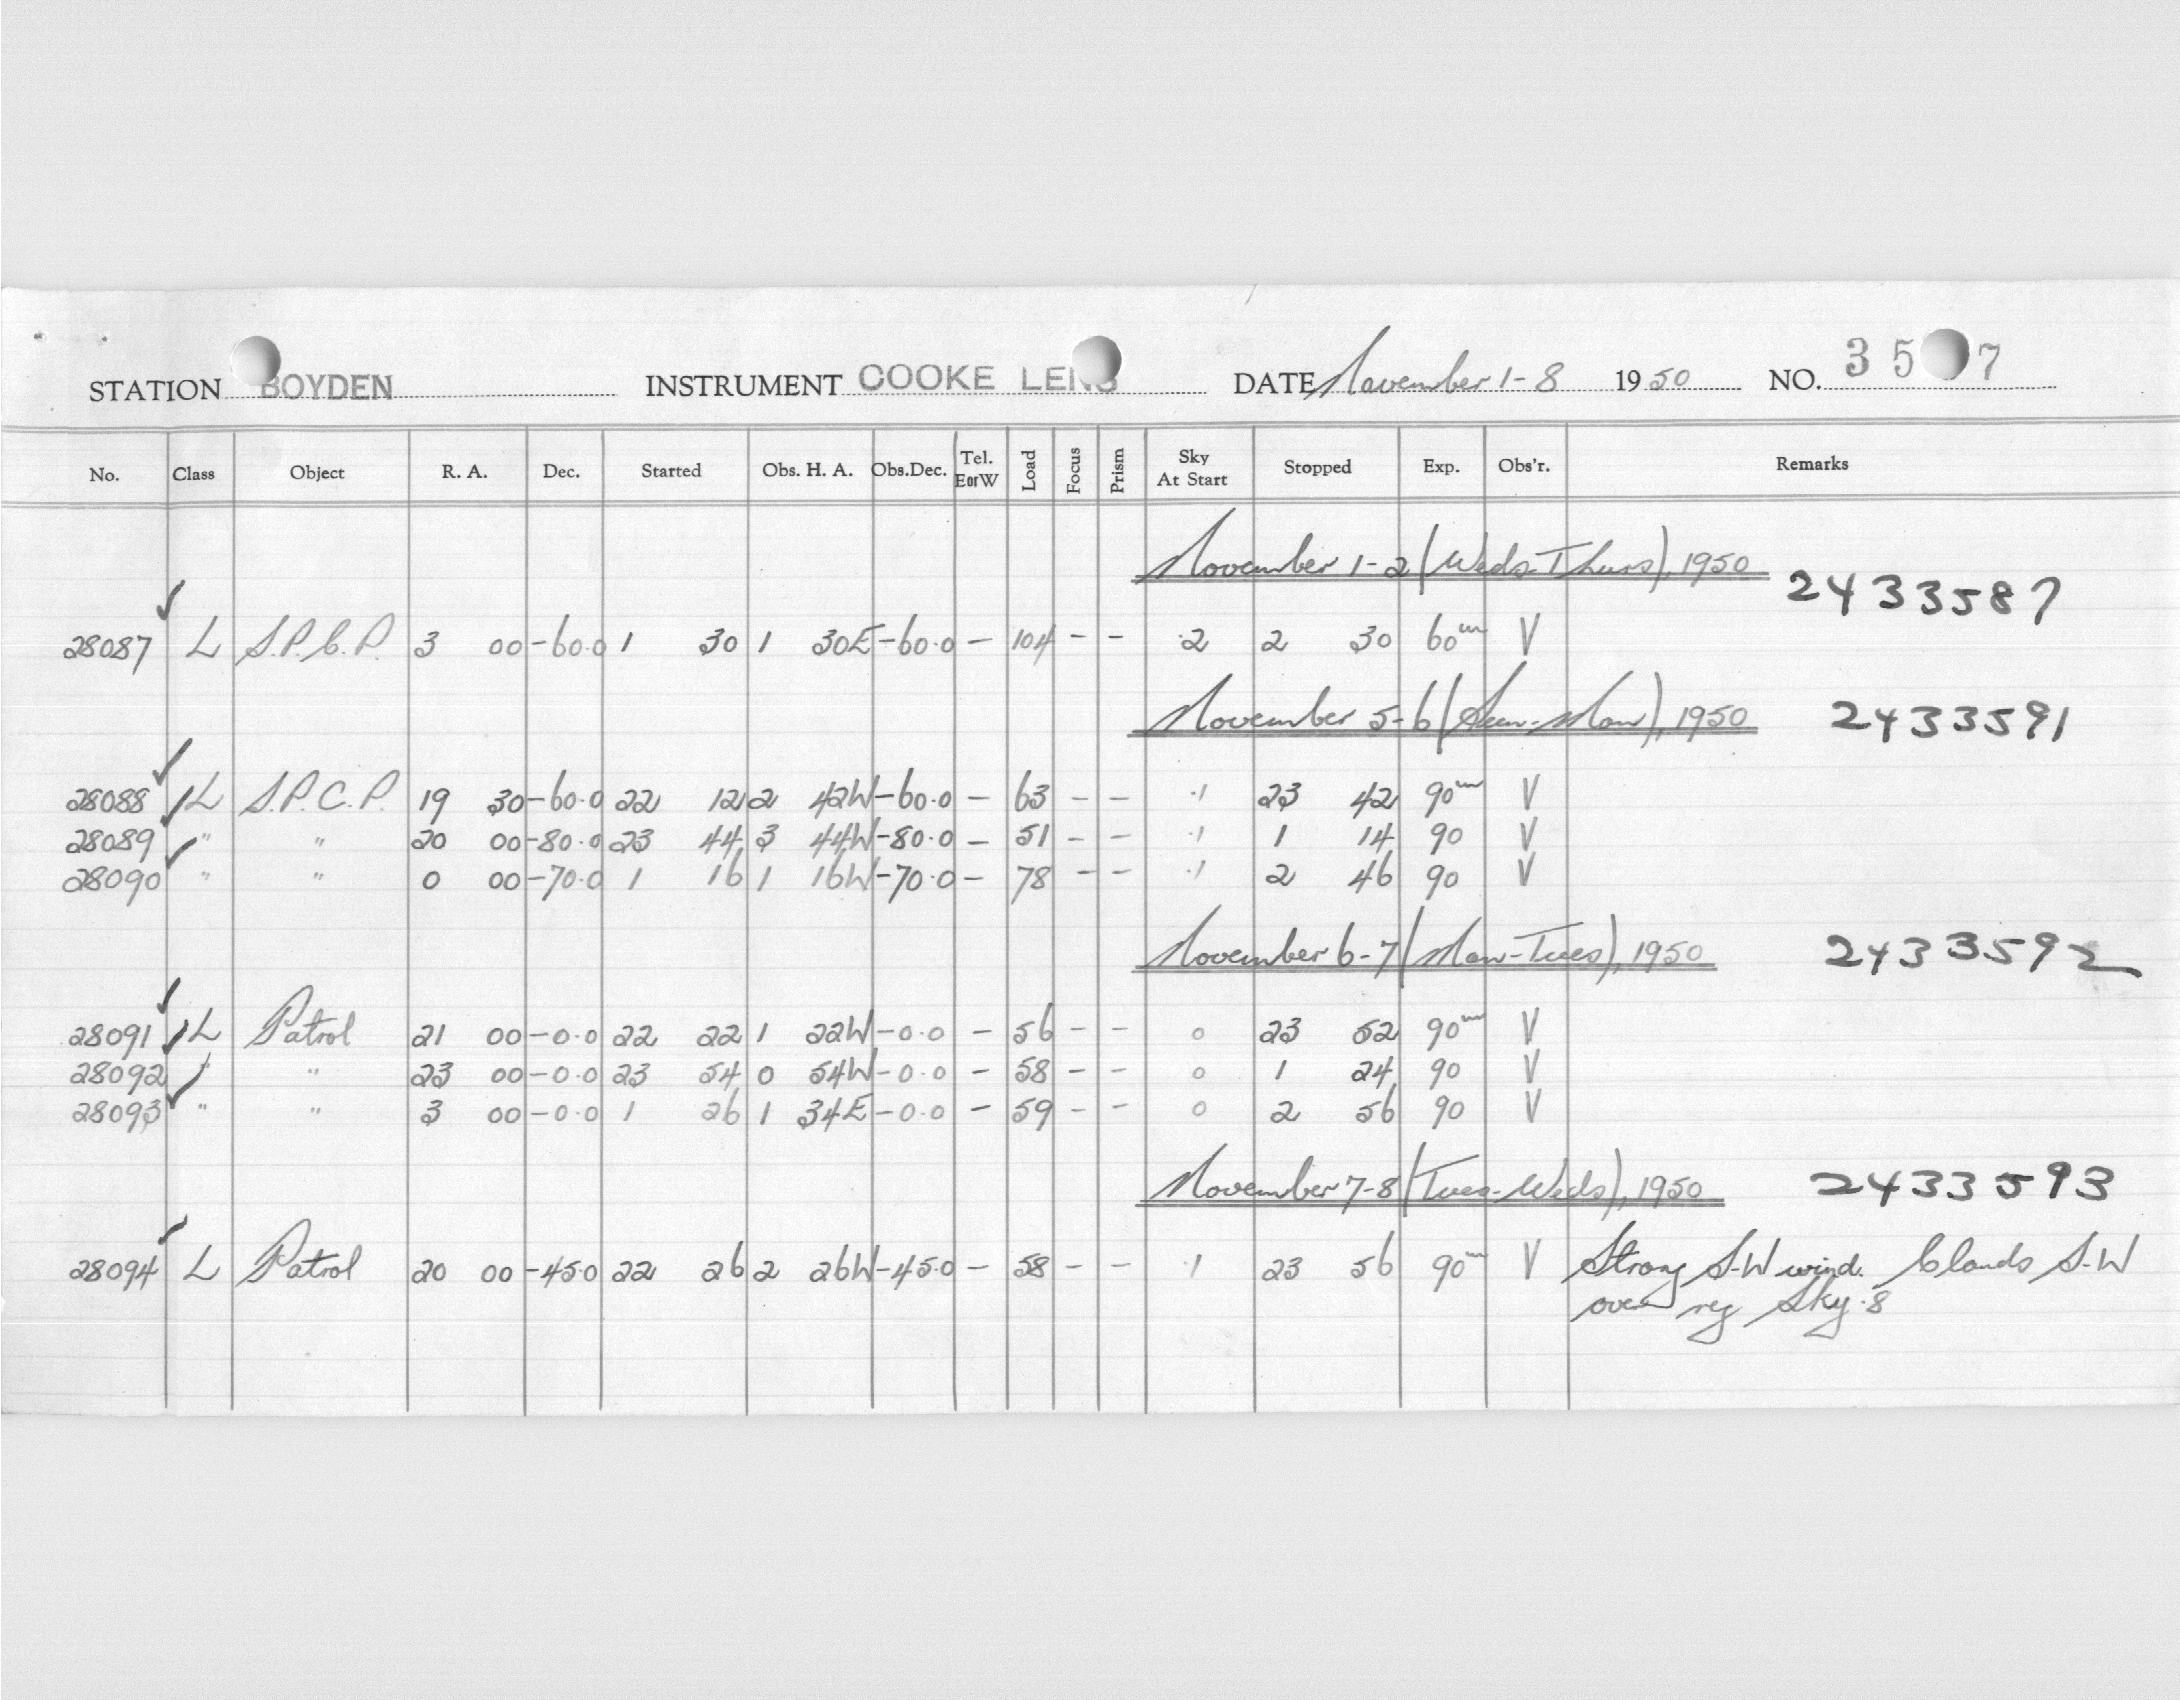 STATION BOYDEN INSTRUMENT COOKE LENS DATE November 1-8 1950 NO. 35 7
No. Class Object R. A. Dec. Started Obs. H. A. Obs.Dec. Tel. EorW Load Focus Prism Sky At Start Stopped Exp. Obs'r. Remarks
November 1-2 (Weds-Thurs), 1950 2433587
28087 ✓ L S.P.C.P. 3 00 -60.0 1 30 1 30E -60.0 - 104 - - .2 2 30 60m V
November 5-6 (Sun-Mon), 1950 2433591
28088 ✓ L S.P.C.P. 19 30 -60.0 22 12 2 42W -60.0 - 63 - - .1 23 42 90m V
28089 ✓ " " 20 00 -80.0 23 44 3 44W -80.0 - 51 - - .1 1 14 90 V
28090 ✓ " " 0 00 -70.0 1 16 1 16W -70.0 - 78 - - .1 2 46 90 V
November 6-7 (Mon-Tues), 1950 2433592
28091 ✓ L Patrol 21 00 -0.0 22 22 1 22W -0.0 - 56 - - 0 23 52 90m V
28092 ✓ " " 23 00 -0.0 23 54 0 54W -0.0 - 58 - - 0 1 24 90 V
28093 ✓ " " 3 00 -0.0 1 26 1 34E -0.0 - 59 - - 0 2 56 90 V
November 7-8 (Tues-Weds), 1950 2433593
28094 ✓ L Patrol 20 00 -45.0 22 26 2 26W -45.0 - 58 - - .1 23 56 90m V Strong S-W wind. Clouds S-W
over reg Sky .8